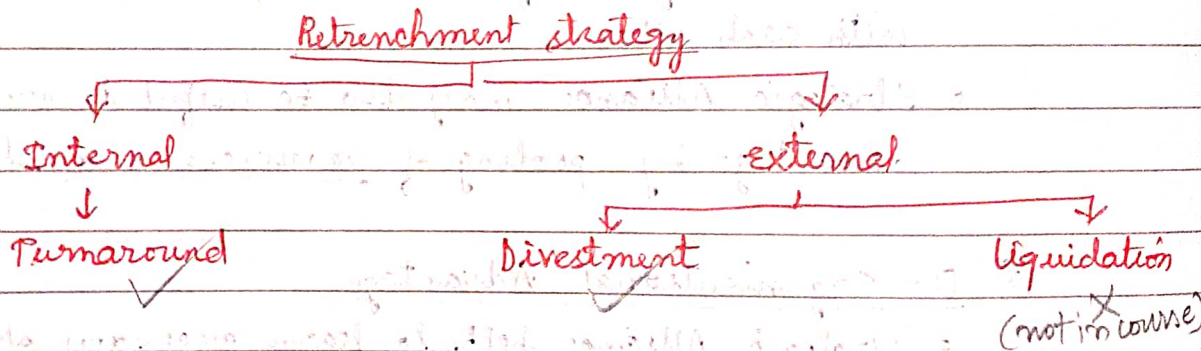 Retrenchment strategy
Internal External
Turnaround Divestment Liquidation
(not in course)